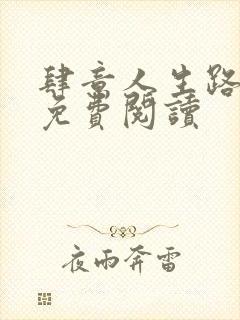 肆意人生路
免費閱讀
夜雨奔雷